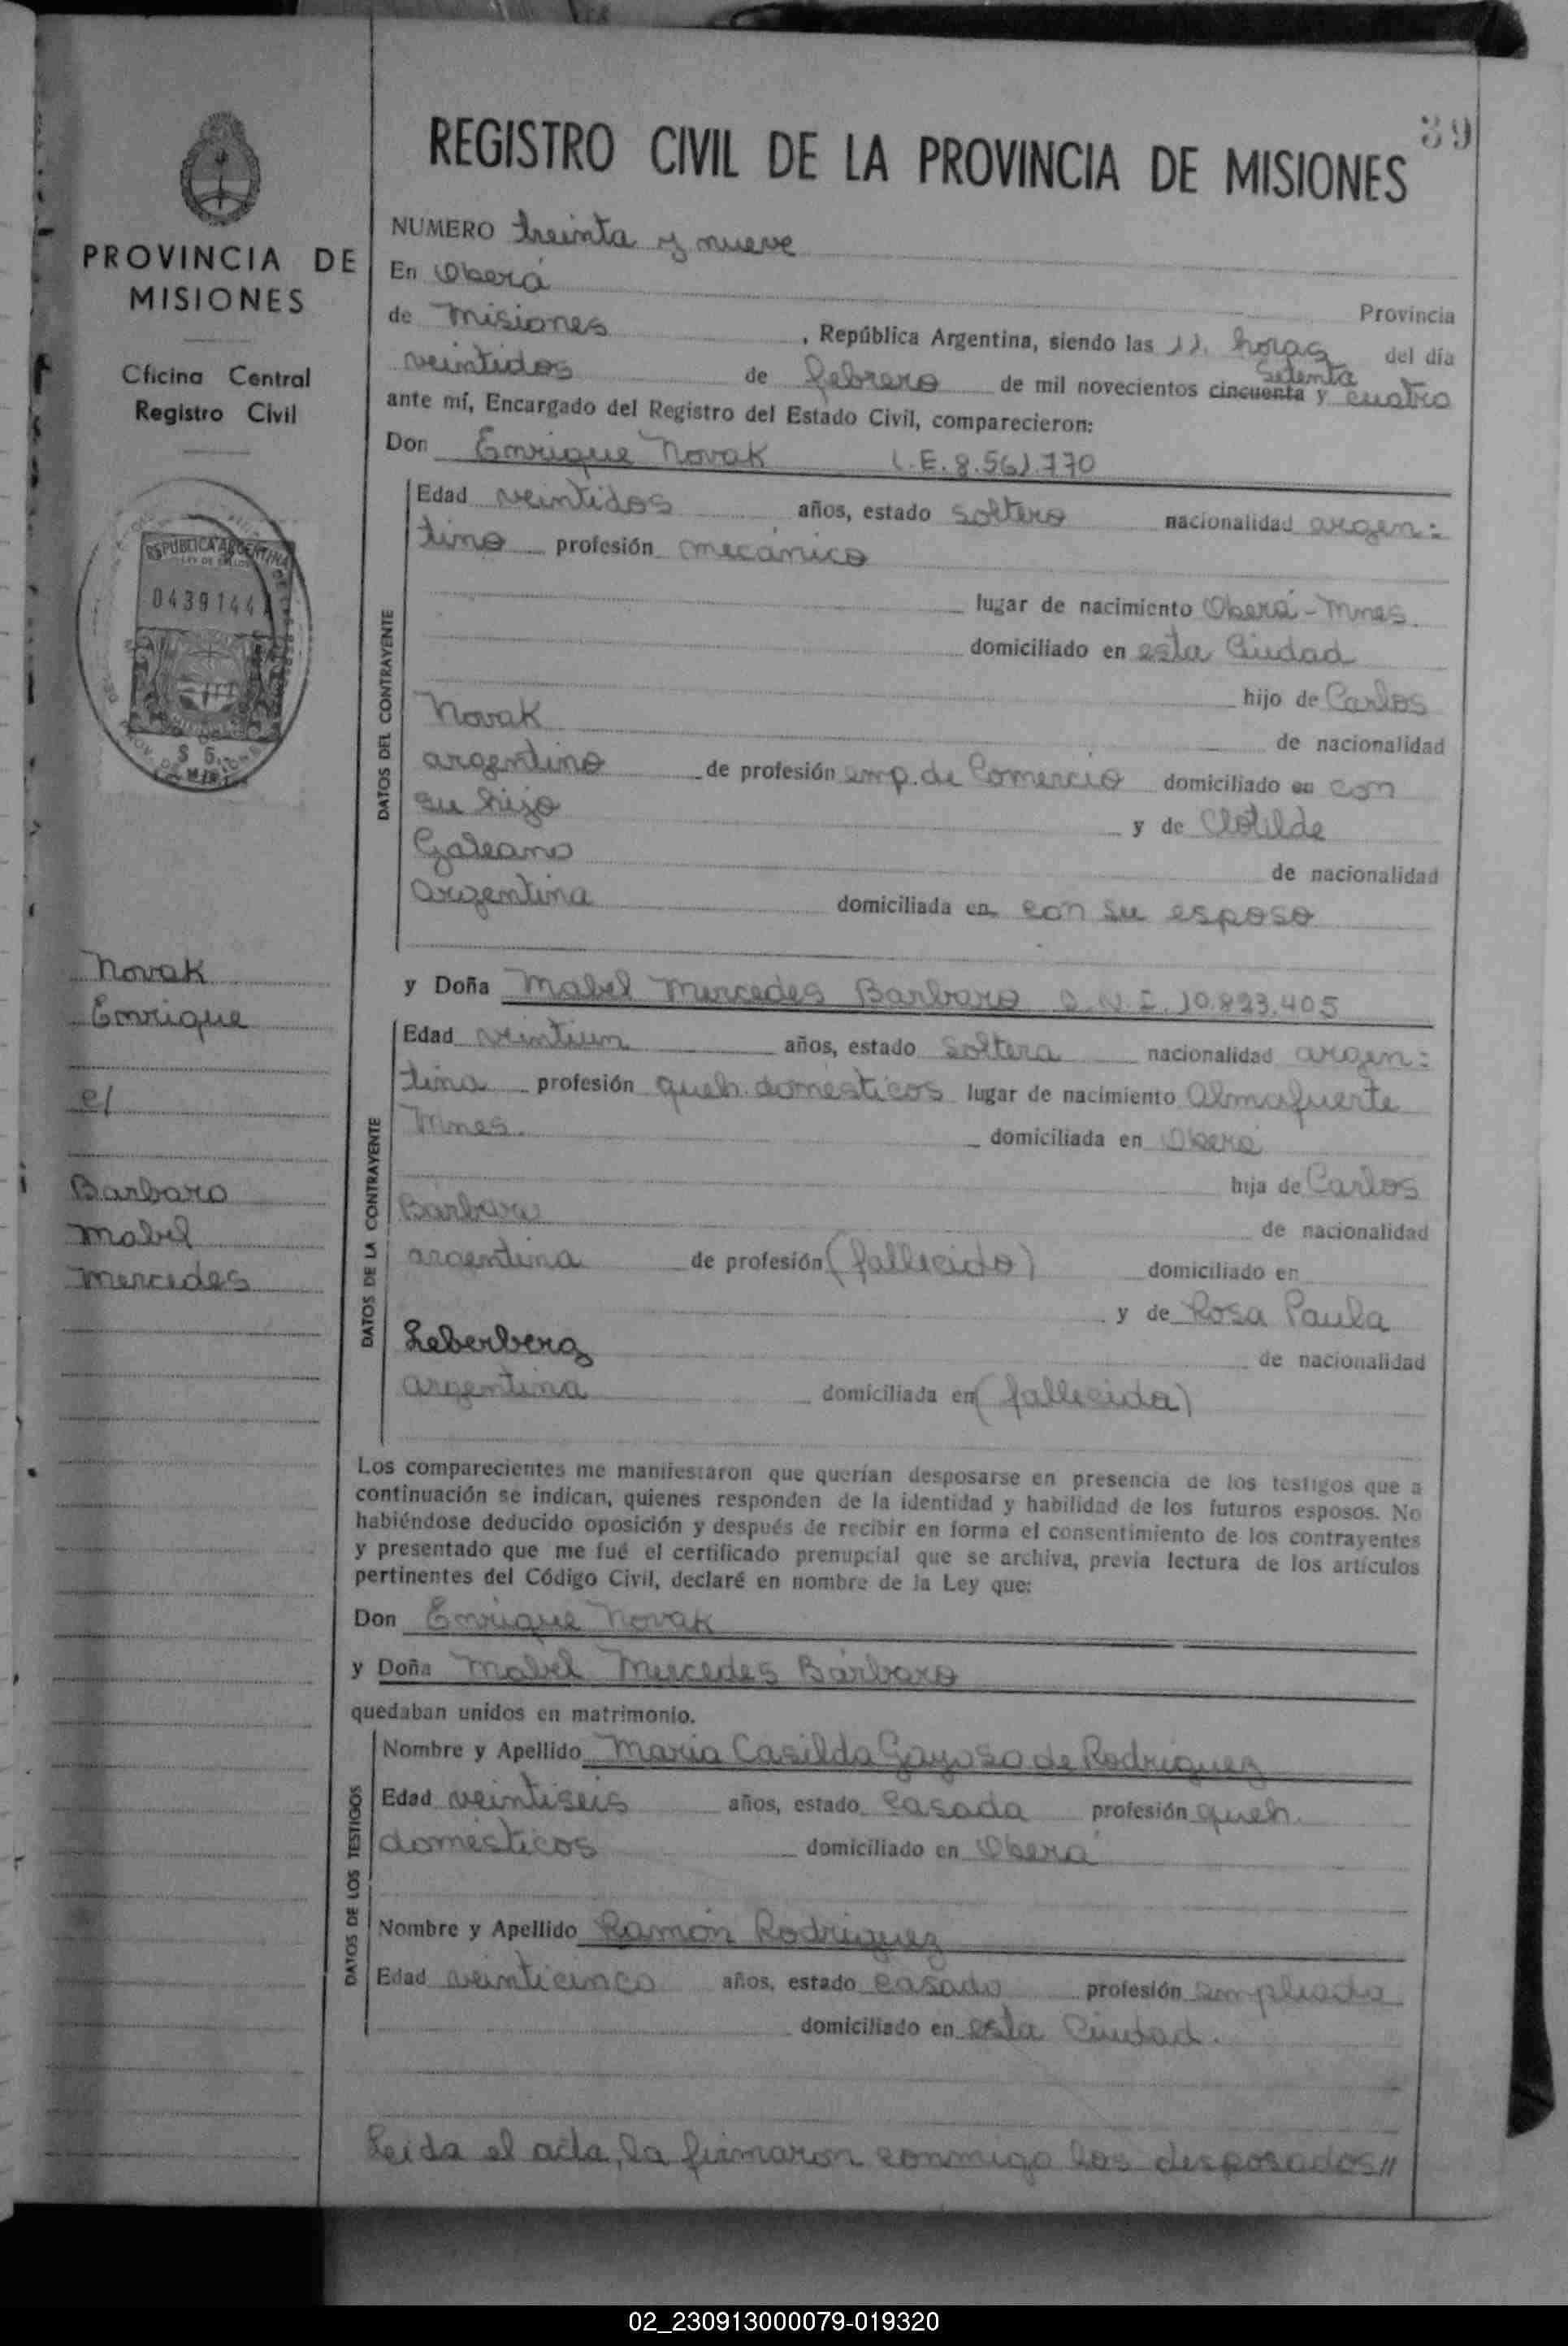 39
REGISTRO CIVIL DE LA PROVINCIA DE MISIONES
PROVINCIA DE
MISIONES
Oficina Central
Registro Civil
REPUBLICA ARGENTINA
LEY DE SELLOS
0439144
$ 5.
Novak
Enrique
c/
Barbaro
Mabel
Mercedes
NUMERO treinta y nueve
En Oberá
Provincia
de Misiones, República Argentina, siendo las 11. horas del día
setenta
veintidos de febrero de mil novecientos cincuenta y cuatro
ante mí, Encargado del Registro del Estado Civil, comparecieron:
Don Enrique Novak L.E. 8.561.770
DATOS DEL CONTRAYENTE
Edad veintidos años, estado soltero nacionalidad argen:
tino profesión mecánico
lugar de nacimiento Oberá - Mnes.
domiciliado en esta Ciudad
hijo de Carlos
Novak
de nacionalidad
argentino de profesión emp. de Comercio domiciliado en con
su hijo y de Clotilde
Galeano
de nacionalidad
argentina domiciliada en con su esposo
y Doña Mabel Mercedes Barbaro D.N.I. 10.823.405
DATOS DE LA CONTRAYENTE
Edad veintiun años, estado soltera nacionalidad argen:
tina profesión queh. domésticos lugar de nacimiento Almafuerte
Mnes. domiciliada en Oberá
hija de Carlos
Bárbaro
de nacionalidad
argentina de profesión (fallecido) domiciliado en
y de Rosa Paula
Leberberg
de nacionalidad
argentina domiciliada en (fallecida)
Los comparecientes me manifestaron que querían desposarse en presencia de los testigos que a
continuación se indican, quienes responden de la identidad y habilidad de los futuros esposos. No
habiéndose deducido oposición y después de recibir en forma el consentimiento de los contrayentes
y presentado que me fué el certificado prenupcial que se archiva, previa lectura de los artículos
pertinentes del Código Civil, declaré en nombre de la Ley que:
Don Enrique Novak
y Doña Mabel Mercedes Bárbaro
quedaban unidos en matrimonio.
DATOS DE LOS TESTIGOS
Nombre y Apellido Maria Casilda Gayoso de Rodriguez
Edad veintiseis años, estado casada profesión queh.
domésticos domiciliado en Oberá
Nombre y Apellido Ramón Rodriguez
Edad veinticinco años, estado casado profesión empliado
domiciliado en esta Ciudad.
Leida el acta, la firmaron conmigo los desposados//
02_230913000079-019320